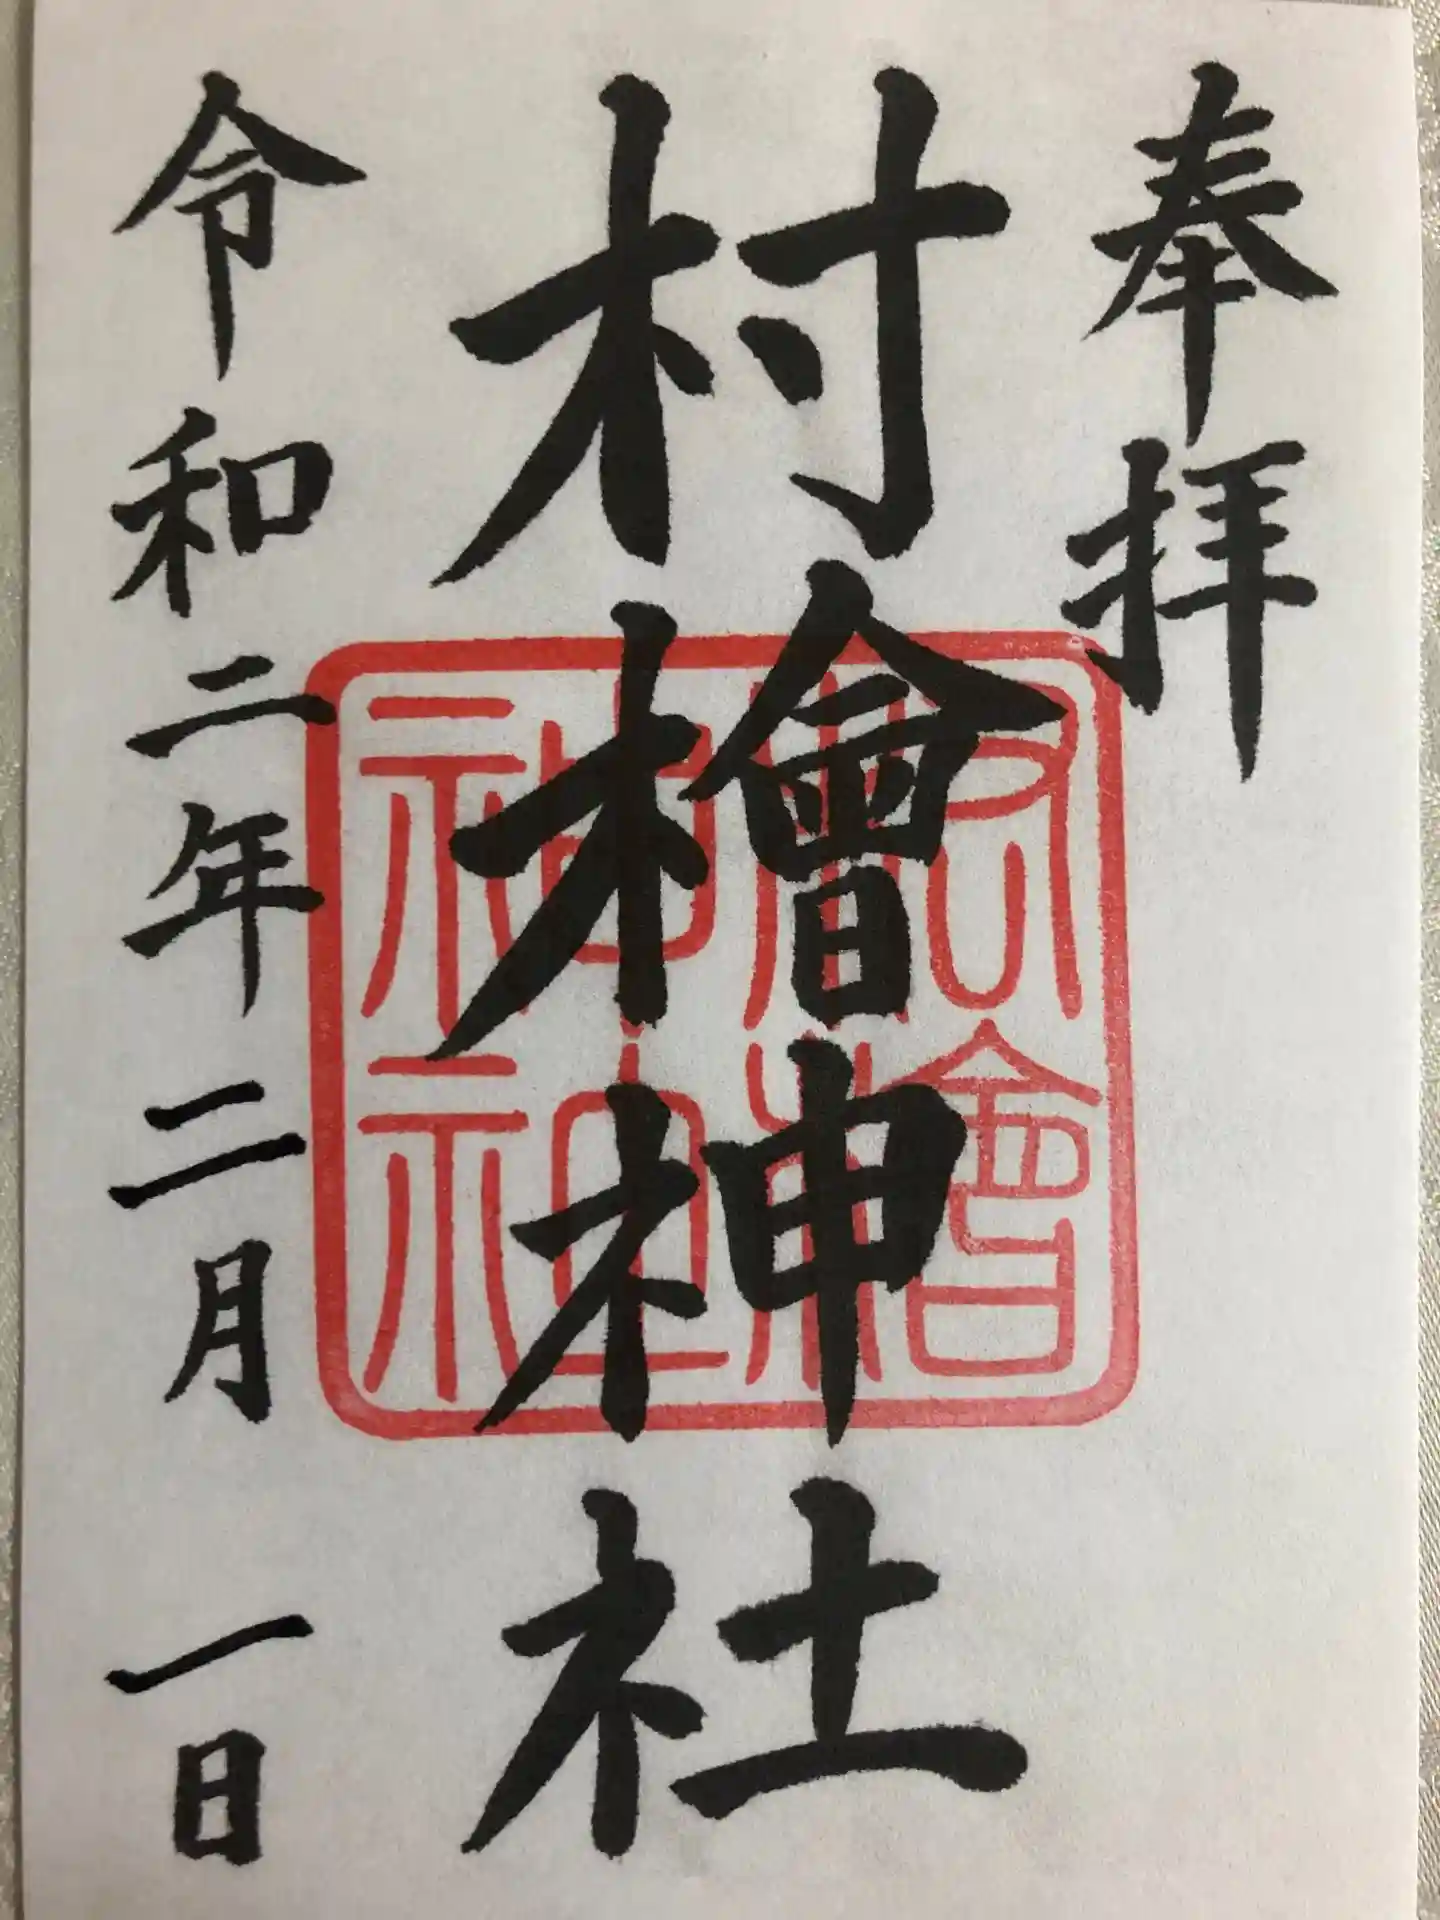 奉拝
村檜神社
令和二年二月一日
村檜神社